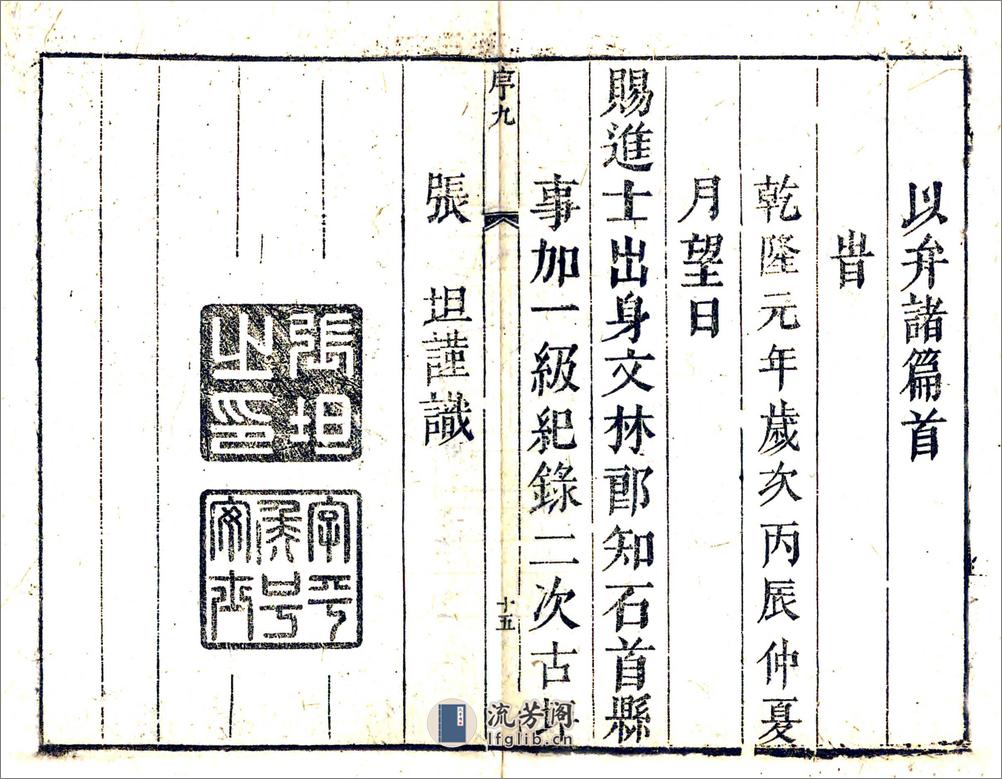 以弁諸篇首
旹
乾隆元年歲次丙辰仲夏
月望日
賜進士出身文林郎知石首縣
事加一級紀錄二次古
張坦謹識
序九
十五
張坦之印
字平侯号安齊
流芳阁
lfglib.cn